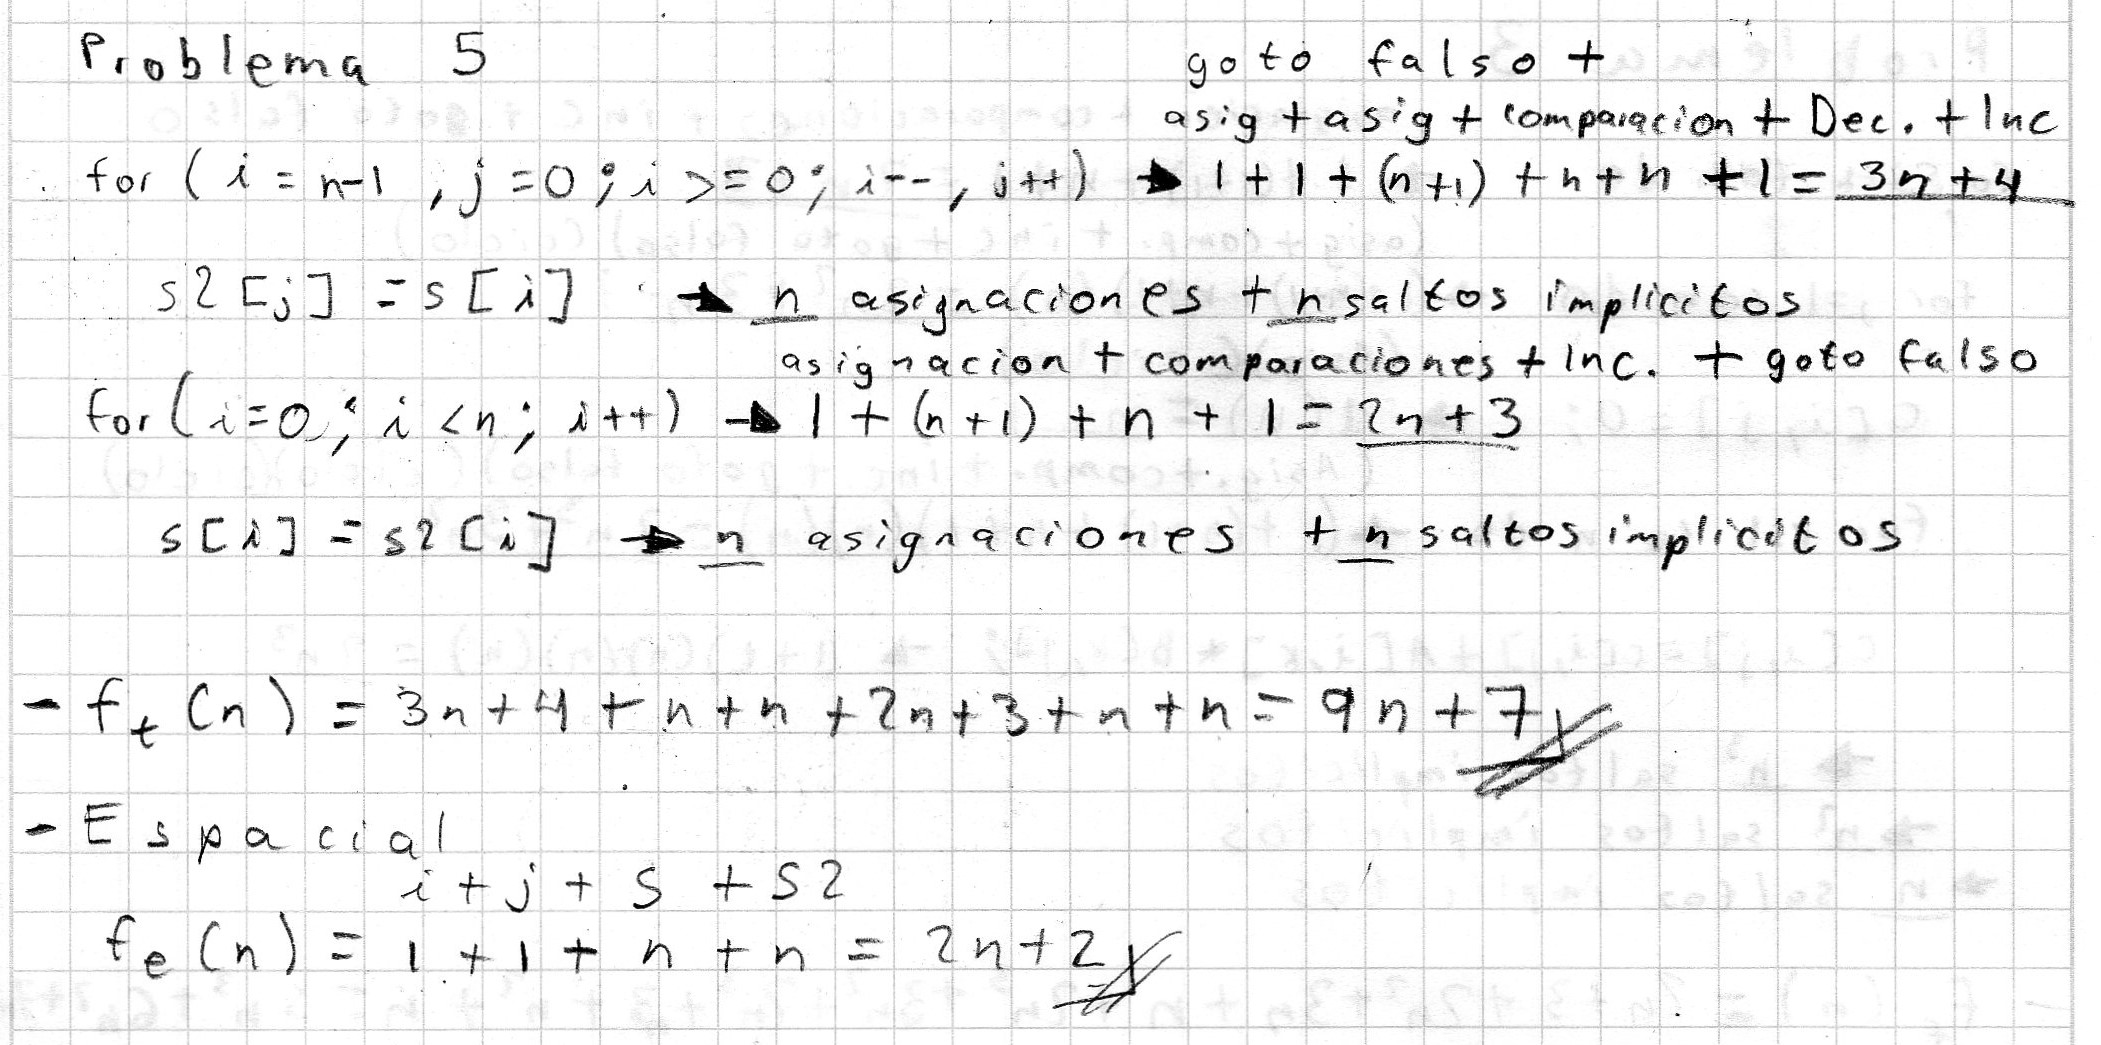 Problema 5
goto falso +
asig + asig + comparacion + Dec. + Inc
for ( i = n-1 , j = 0 ; i >= 0 ; i-- , j++ ) → 1 + 1 + (n+1) + n + n + 1 = 3n + 4
s2 [j] = s [i] → n asignaciones + n saltos implicitos
asignacion + comparaciones + Inc. + goto falso
for ( i=0 ; i < n ; i++ ) → 1 + (n+1) + n + 1 = 2n + 3
s[i] = s2 [i] → n asignaciones + n saltos implicitos
- ft (n) = 3n + 4 + n + n + 2n + 3 + n + n = 9n + 7
- Espacial
i + j + s + s2
fe (n) = 1 + 1 + n + n = 2n + 2